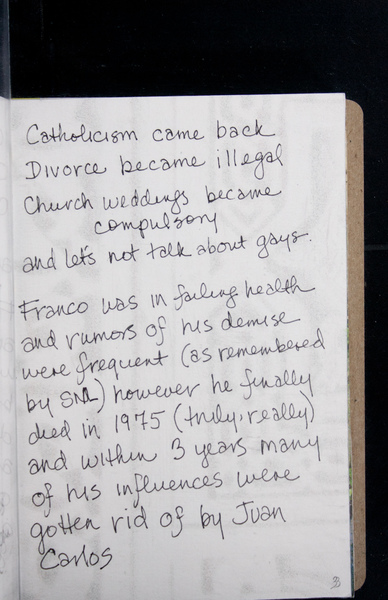 Catholicism came back
Divorce became illegal
Church weddings became
compulsory
and let's not talk about gays.
Franco was in failing health
and rumors of his demise
were frequent (as remembered
by SNL) however he finally
died in 1975 (truly, really)
and within 3 years many
of his influences were
gotten rid of by Juan
Carlos